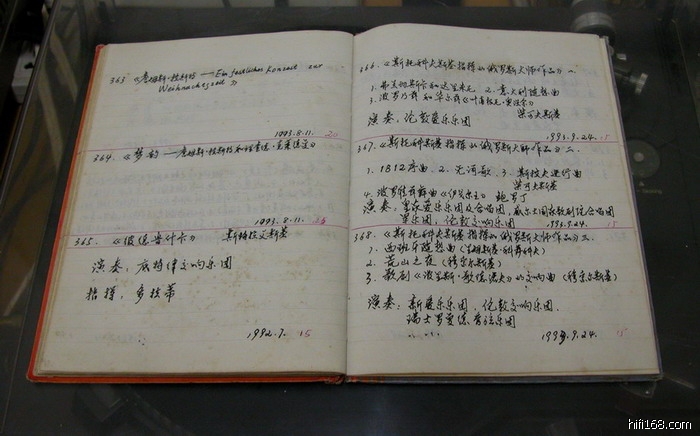 363 《詹姆斯·拉斯特 — Ein festliches Konzert zur
Weihnachtszeit》
1993.8.11. 20
364. 《梦的 — 詹姆斯·拉斯特
1993.8.11.
365. 《彼德鲁什卡》 斯特拉文斯基
演奏: 底特律交响乐团
指挥: 多拉蒂
1992.7. 15
366. 《斯托科夫斯基指挥的俄罗斯大师作品》一
1. 弗兰切斯卡和达里米尼 2. 意大利随想曲
3. 波罗乃兹和华尔兹《叶甫根尼·奥涅金》
柴可夫斯基
演奏: 伦敦爱乐乐团
1993.9.24. 15
367. 《斯托科夫斯基指挥的俄罗斯大师作品》二.
1. 1812序曲. 2. 3. 斯拉夫进行曲
柴可夫斯基
4. 波罗维茨舞曲《伊戈尔王》 鲍罗丁
演奏: 皇家爱乐乐团及合唱团, 威尔士国家歌剧院合唱团
军乐团, 伦敦交响乐团
1993.9.24. 15
368. 《斯托科夫斯基指挥的俄罗斯大师作品》三.
1. 西班牙随想曲 (里姆斯基·科萨科夫)
2. 荒山之夜 (穆索尔斯基)
3. 歌剧《波里斯·戈都诺夫》的交响曲 (穆索尔斯基)
演奏: 新爱乐乐团, 伦敦交响乐团.
瑞士罗曼德管弦乐团
1993.9.24. 15
hifi168.com